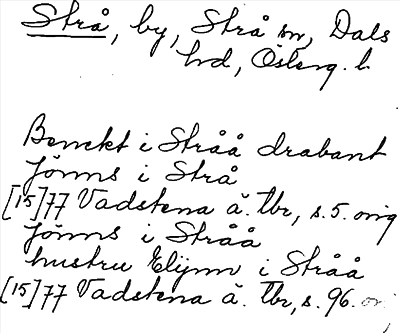 Strå, by, Strå sn, Dals
hd, Österg. l.
Benckt i Stråå drabant
Jönns i Strå
[15]77 Vadstena ä. tbr, s. 5. orig
Jönns i Stråå
hustru Elijnn i Stråå
[15]77 Vadstena ä. tbr, s. 96.